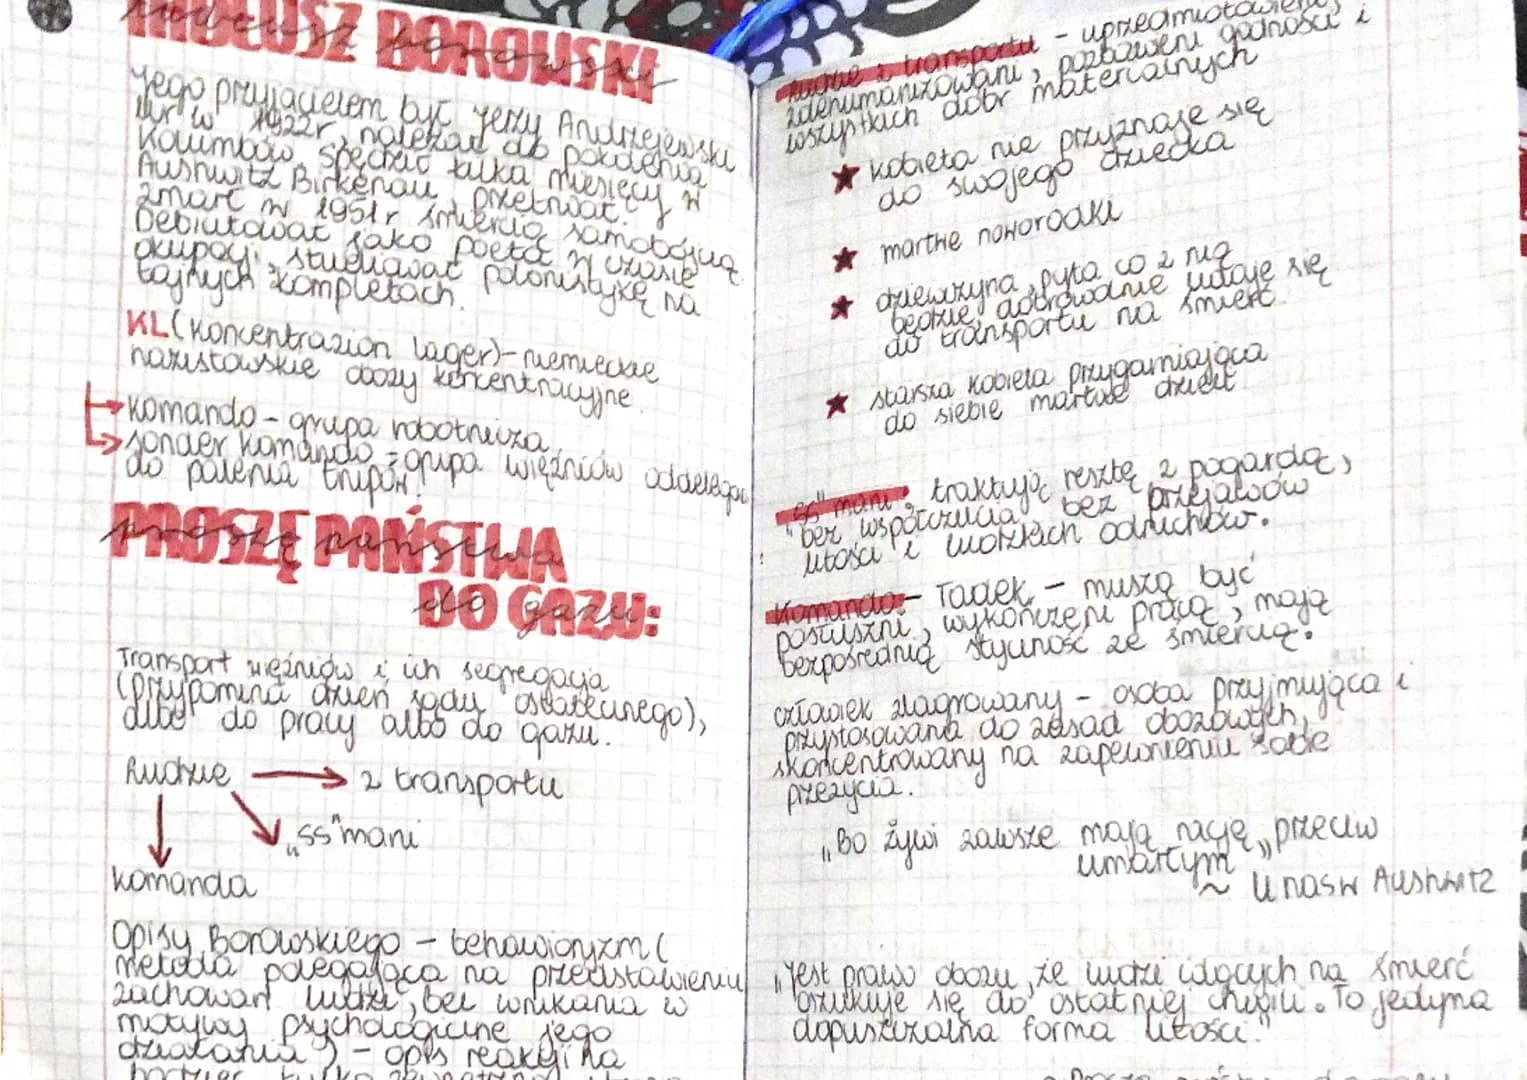 TADEUSZ BOROWSKI
Jego przyjacielem był Jerzy Andrzejewski
Ur w 1922r, należał do pokolenia
Kolumbów, spędził kilka miesięcy w
Aushwitz Birkenau, przetrwał.
Zmarł w 1951r śmiercią samobójczą.
Debiutował jako poeta w czasie
okupacji, studiował polonistykę na
tajnych kompletach.
KL (Koncentrazion lager) - niemieckie
nazistowskie obozy koncentracyjne.
komando - grupa robotnicza
sonder komando - grupa więźniów oddelego
do palenia trupów.
PROSZĘ PAŃSTWA
DO GAZU:
Transport więźniów i ich segregacja
(przypomina dzień sądu ostatecznego),
albo do pracy albo do gazu.
Ludzie → z transportu
„SS"mani
komanda
Opisy Borowskiego - behawioryzm (
metoda polegająca na przedstawieniu
zachowań ludzi, bez wnikania w
motywy psychologiczne jego
działania) - opis reakcji na
ludzie z transportu - uprzedmiotowieni,
zdehumanizowani, pozbawieni godności i
wszystkich dóbr materialnych
★ kobieta nie przyznaje się
do swojego dziecka
★ martwe noworodki
★ dziewczyna pyta co z nią
będzie, dobrowolnie udaje się
do transportu na śmierć.
★ starsza kobieta przygarniająca
do siebie martwe dzieci
„SS"mani - traktują resztę z pogardą,
bez współczucia, bez przejawów
litości i ludzkich odruchów.
Komando - Tadek - muszą być
posłuszni, wykończeni pracą, mają
bezpośrednią styczność ze śmiercią.
człowiek zlagrowany - osoba przyjmująca i
przystosowana do zasad obozowych,
skoncentrowany na zapewnieniu sobie
przeżycia.
„Bo żywi zawsze mają rację, przeciw
umarłym"
~ U nas w Aushwitz
„Jest prawo obozu, że ludzi idących na śmierć
oszukuje się do ostatniej chwili. To jedyna
dopuszczalna forma litości."